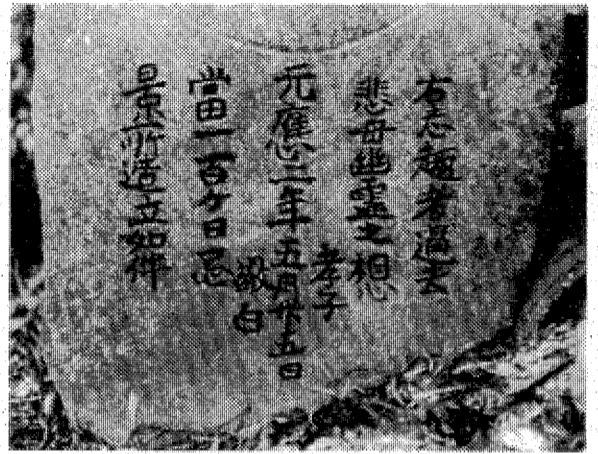 右志趣者過去
悲母幽靈之想
孝子
元應二年五月廿五日
敬白
當一百ケ日忌
景所造立如件